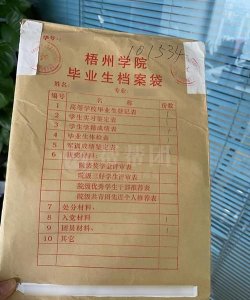 学号:
161534
梧州学院
毕业生档案袋
姓名:
专业
编号 名 称 份数
1 高等学校毕业生登记表
2 学生实习鉴定表
3 学生学籍成绩表
4 毕业生体检表
5 军训成绩鉴定表
6 获奖材料:
院级三好学生评审表
院级优秀学生干部推荐表
院级共青团先进个人推荐表
7 处分材料:
8 入党材料:
9 团员材料:
10 其它